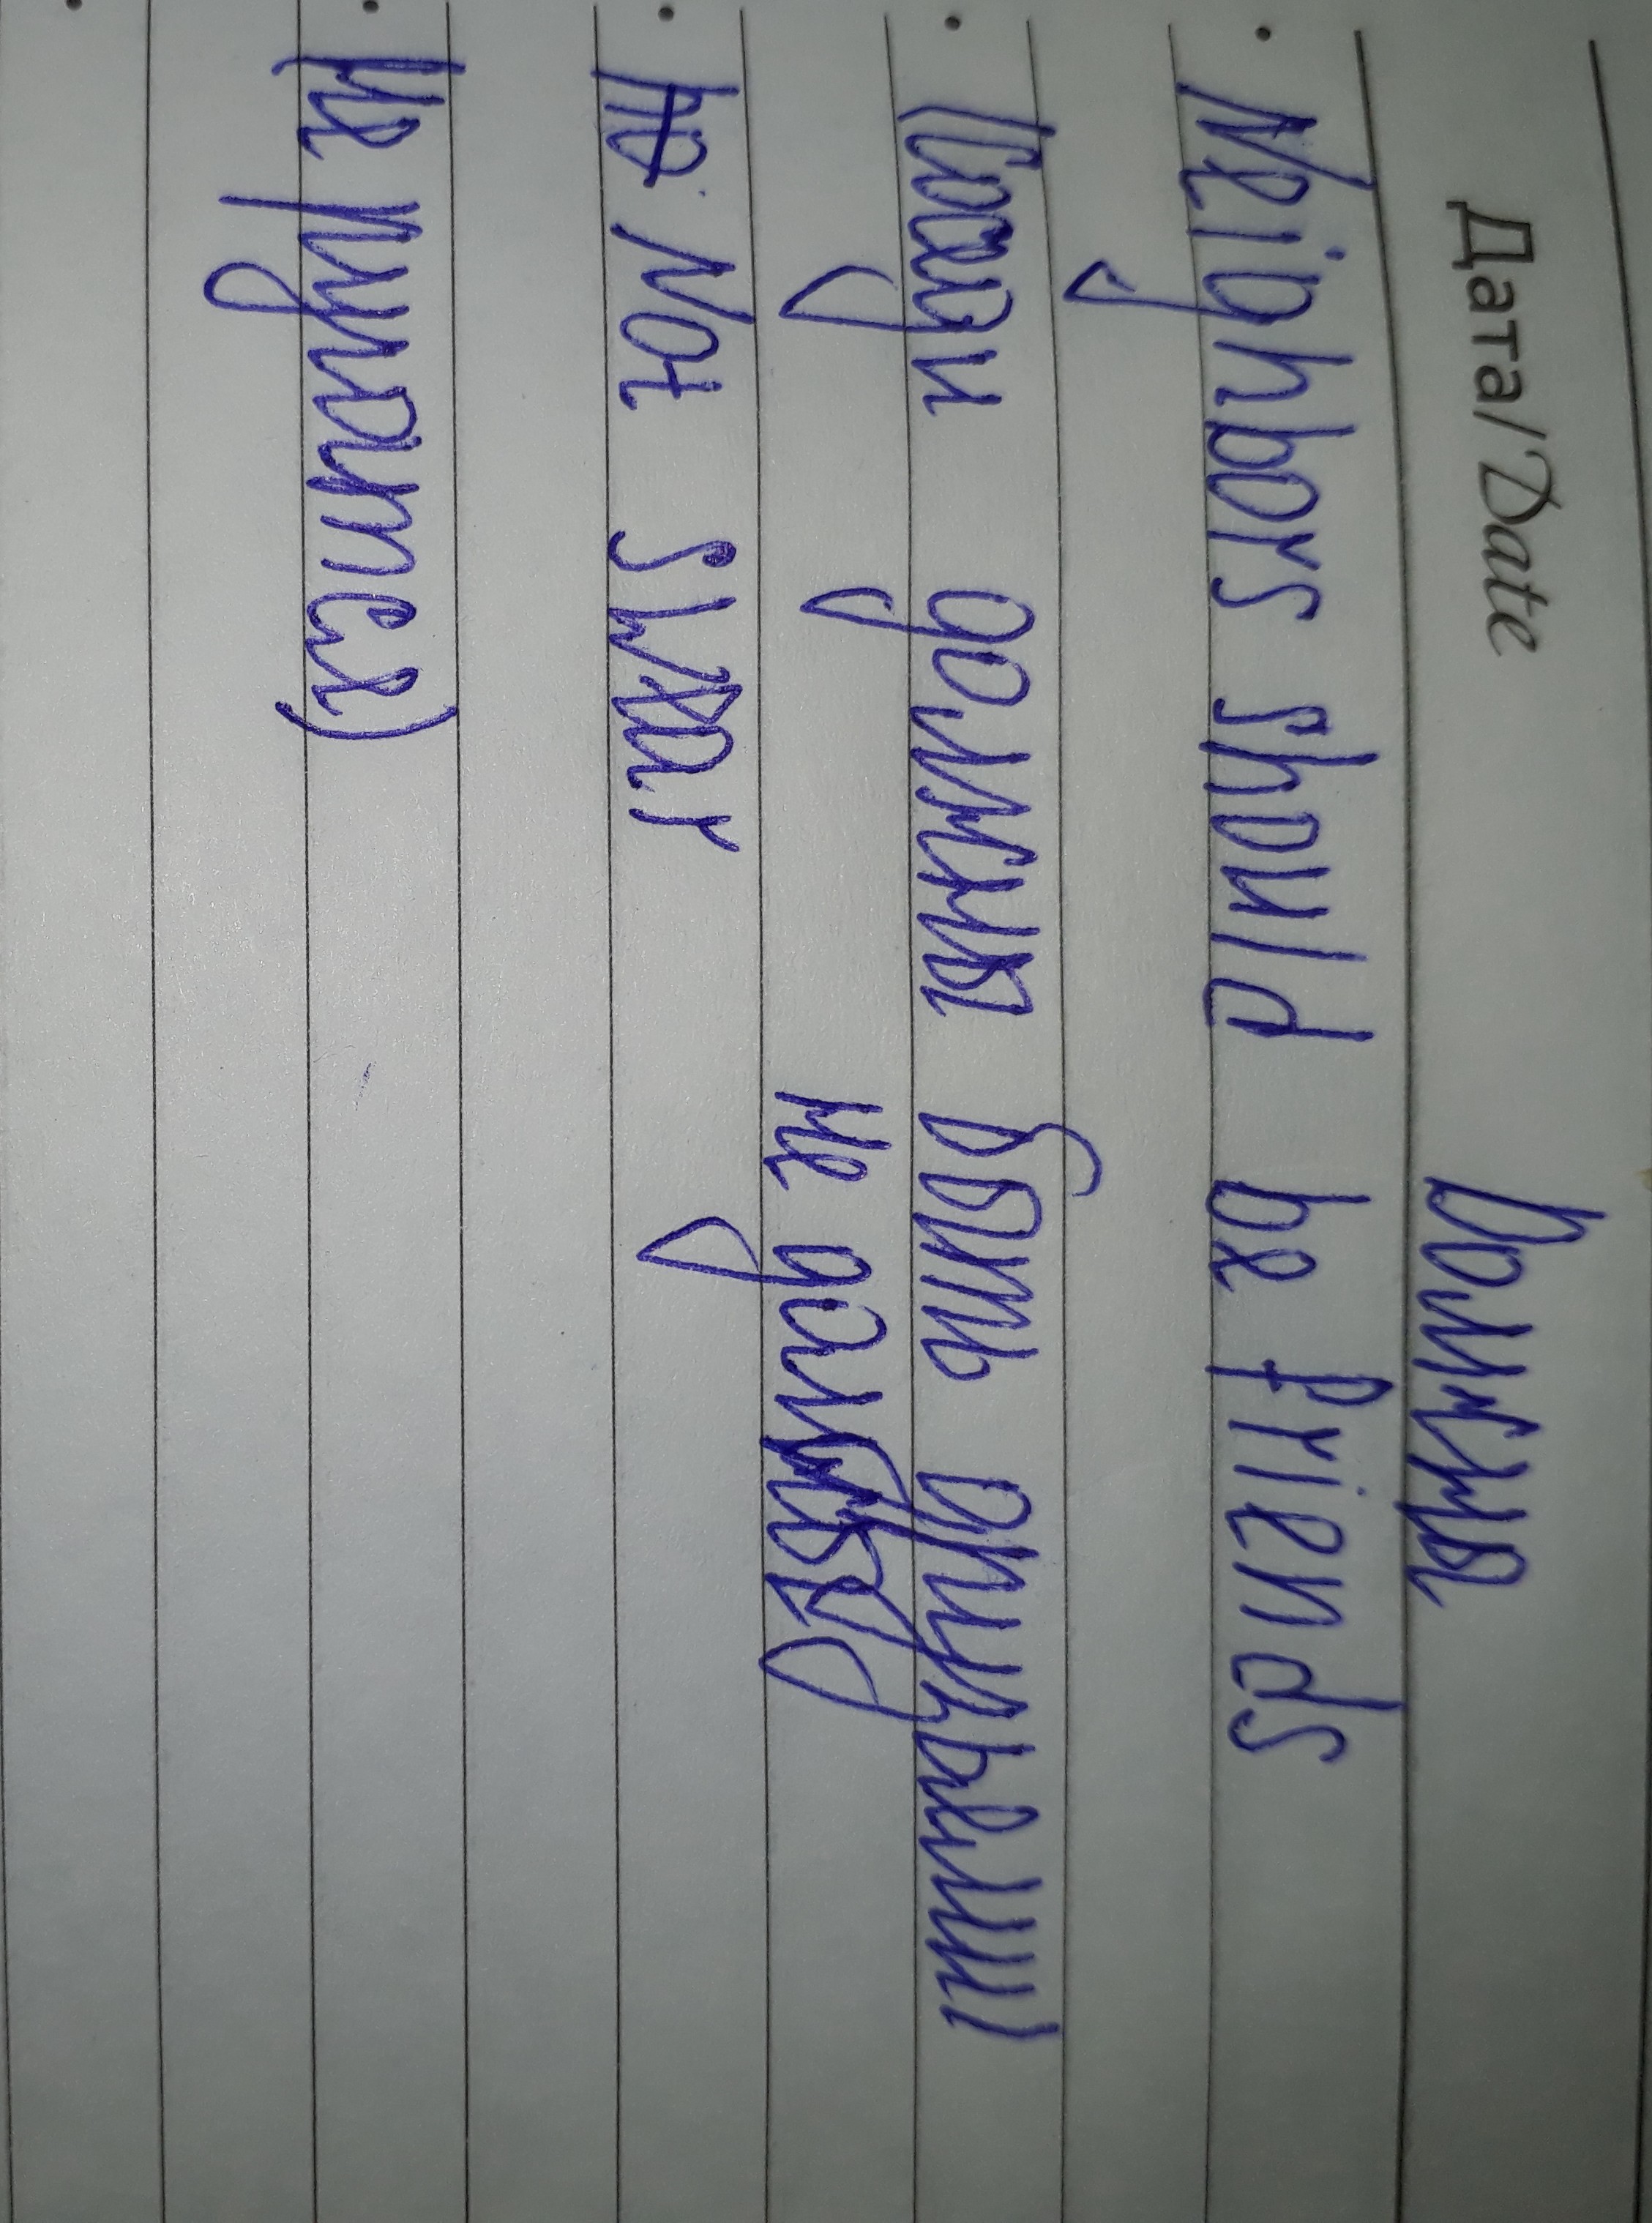 Дата/Date
Должны
Neighbors should be friends
(Соседи должны быть друзьями
не должны
Not swear
не ругаться)